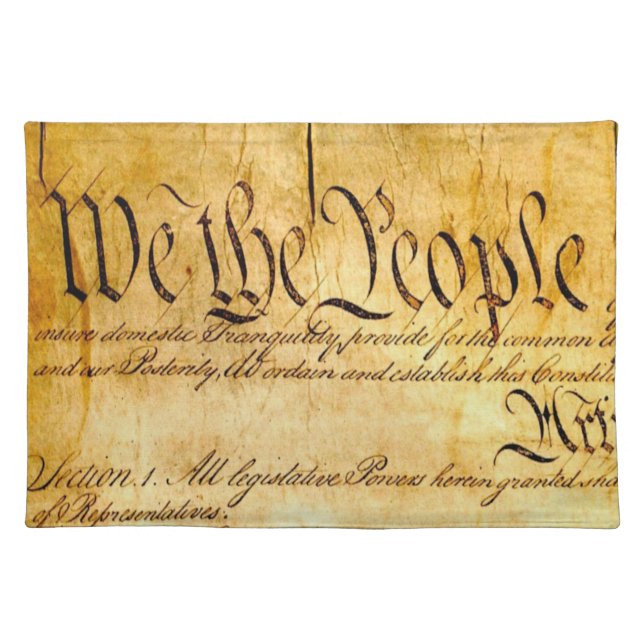 We the People
insure domestic Tranquility, provide for the common
and our Posterity, do ordain and establish this Constitu
Arti
Section. 1. All legislative Powers herein granted sha
of Representatives.